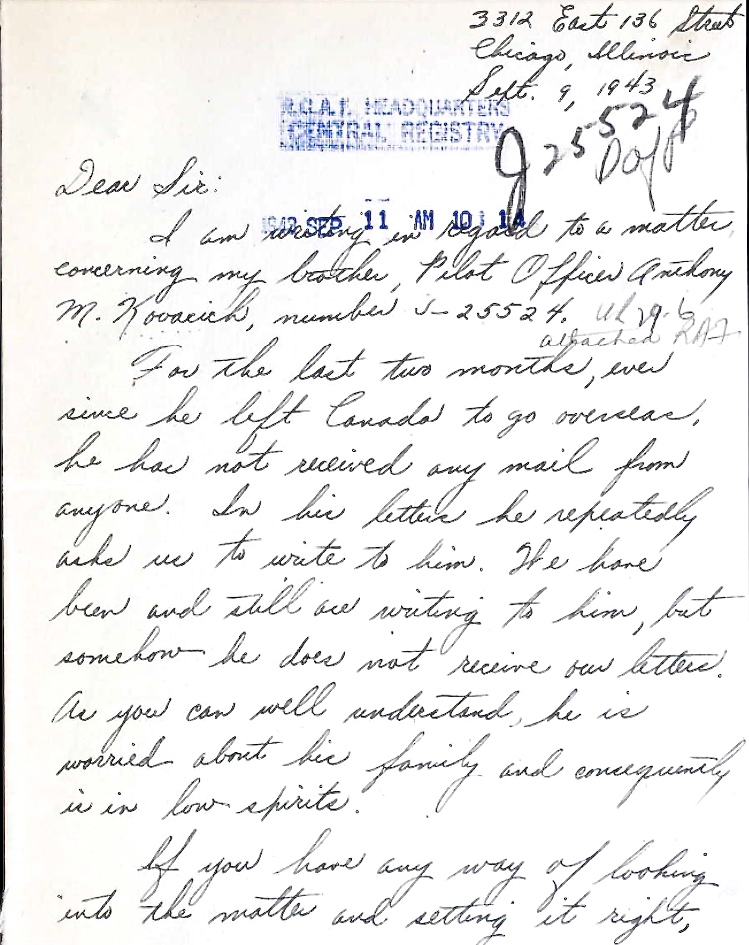 3312 East 136 Street
Chicago, Illinois
Sept. 9, 1943
R.C.A.F. HEADQUARTERS
CENTRAL REGISTRY
J 25524
D of P
Dear Sir:
SEP 11 AM 10 14
I am writing in regard to a matter
concerning my brother, Pilot Officer Anthony
M. Kovacich, number J-25524.
attached RAF
For the last two months, ever
since he left Canada to go overseas,
he has not received any mail from
anyone. In his letters he repeatedly
asks us to write to him. We have
been and still are writing to him, but
somehow he does not receive our letters.
As you can well understand, he is
worried about his family and consequently
is in low spirits.
If you have any way of looking
into the matter and setting it right,